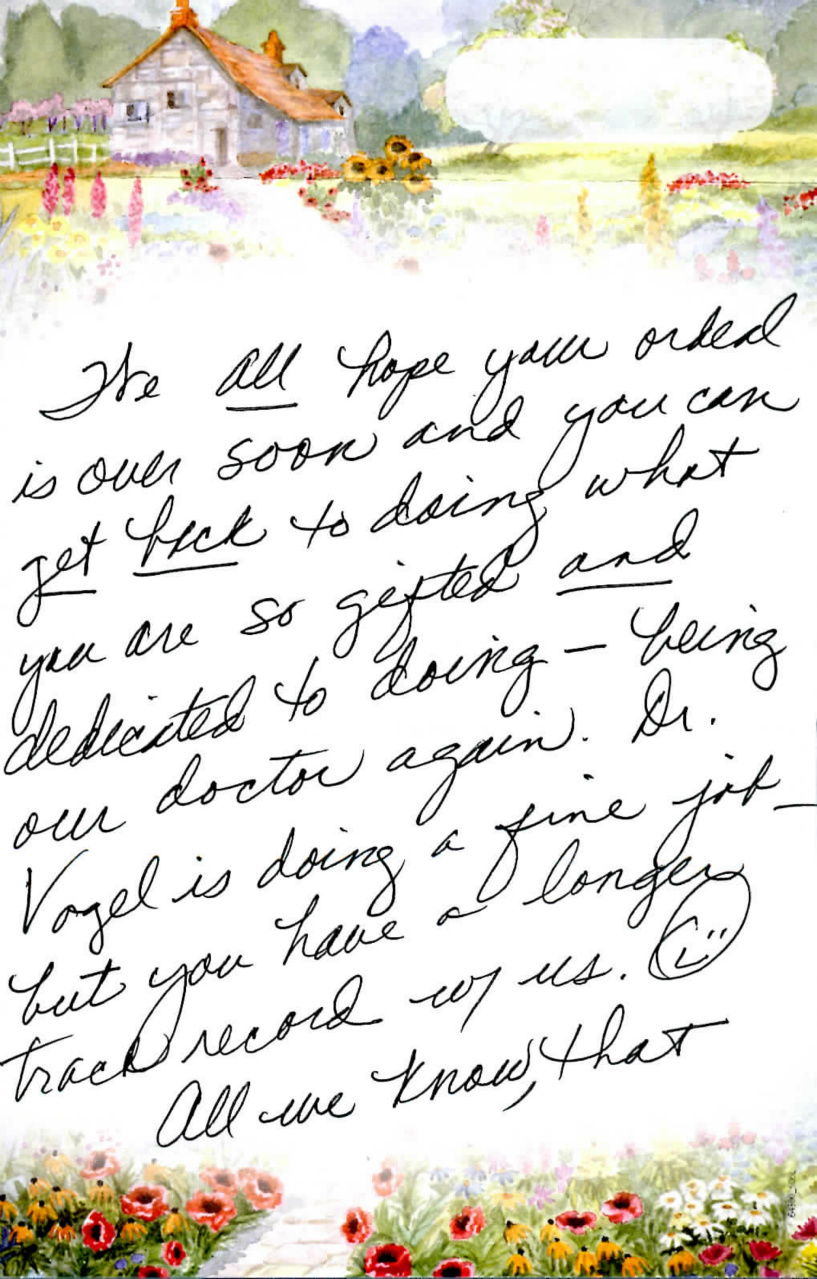 We all hope your ordeal
is over soon and you can
get back to doing what
you are so gifted and
dedicated to doing — being
our doctor again. Dr.
Vogel is doing a fine job —
but you have a longer
track record w/ us.
All we know, that